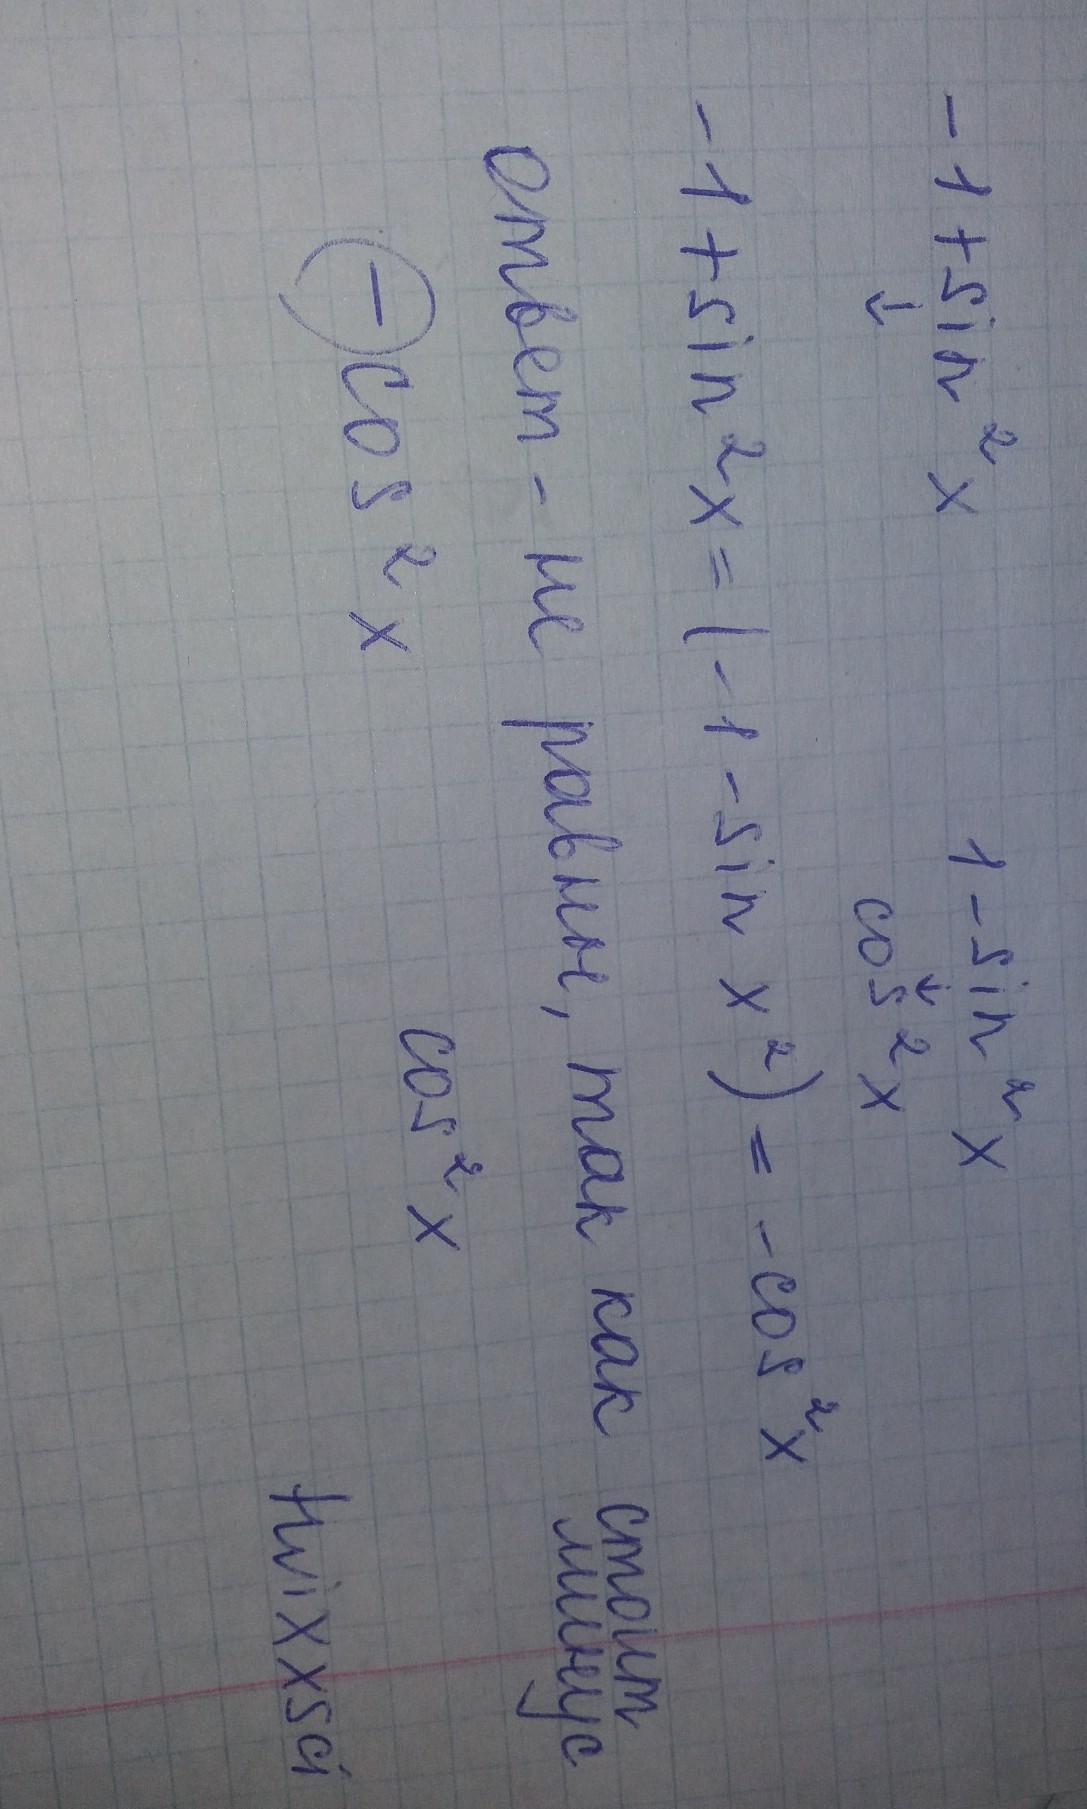 -1+sin²x 1-sin²x
↓ ↓
cos²x
-1+sin²x=(-1-sin x²)=-cos²x
Ответ - не равны, так как стоит
минус
-cos²x cos²x